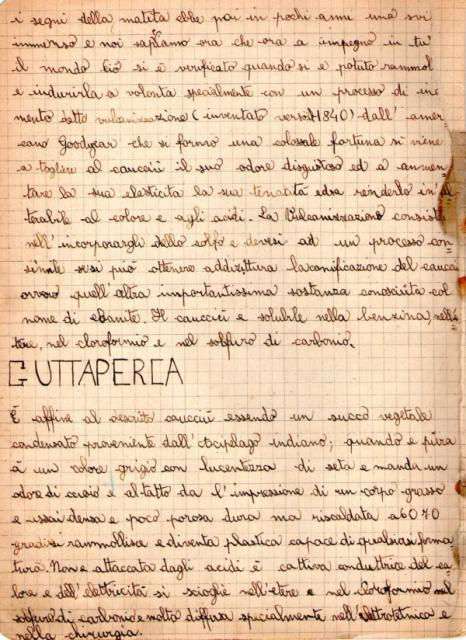 i segni della matita ebbe poi in pochi anni uno svi
immenso e noi sappiamo ora che ora a impegno in tu'
il mondo. Ciò si è verificato quando si è potuto rammol
e indurirla a volontà specialmente con un processo di
mento sotto vulcanizzazione (inventato verso il 1840) dall' amer
cano Goodyear che si formò una colossale fortuna si viene
a togliere al caucciù il suo odore disgustoso ed a aumen
tare la sua elasticità la sua tenacità ed a renderlo in'al
terabile al calore e agli acidi. La Vulcanizzazione consiste
nell'incorporargli dello solfo e devesi ad un processo con
simile se si può ottenere addirittura la conificazione del caucciù
ovvero quell'altra importantissima sostanza conosciuta col
nome di ebanite. Il caucciù e solubile nella benzina, nell'e
tere, nel cloroformio e nel solfuro di carbonio.
GUTTAPERCA
È affine al descritto caucciù essendo un succo vegetale
condensato proveniente dall'Arcipelago indiano; quando e pura
à un colore grigio con lucentezza di seta e manda un
odore di cuoio e al tatto da l'impressione di un corpo grasso
e assai densa e poco porosa dura ma riscaldata a 60 70
gradi si rammollisce e diventa plastica capace di qualsiasi forma
tura. Non e attaccata dagli acidi è cattiva conduttrice del ca
lore e dell'elettricità si scioglie nell'etere e nel cloroformio nel
solfuro di carbonio e molto diffusa specialmente nell'elettrotecnica e
nella chirurgia.